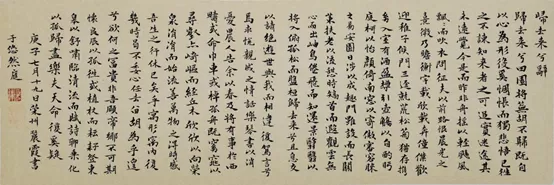 歸去來兮辭
歸去來兮田園將蕪胡不歸既自
以心為形役奚惆悵而獨悲悟已往
之不諫知來者之可追實迷途其
未遠覺今是而昨非舟搖搖以輕颺風
飄飄而吹衣問征夫以前路恨晨光之
熹微乃瞻衡宇載欣載奔僮僕歡
迎稚子候門三逕就荒松菊猶存攜
幼入室有酒盈罇引壺觴以自酌眄
庭柯以怡顏倚南窗以寄傲審容膝
之易安園日涉以成趣門雖設而長關
策扶老以流憩時矯首而遐觀雲無
心而出岫鳥倦飛而知還景翳翳以
將入撫孤松而盤桓歸去來兮且息交
以絕遊世與我而相違復駕言兮
焉求悅親戚之情話樂琴書以消
憂農人告余以春及將有事於西
疇或命巾車或棹孤舟既窈窕以
尋壑亦崎嶇而經丘木欣欣以向榮
泉涓涓而始流善萬物之得時感
吾生之行休已矣乎寓形宇內復
幾時曷不委心任去留胡為乎遑
兮欲何之富貴非吾願帝鄉不可期
懷良辰以孤往或植杖而耘耔登東
皋以舒嘯臨清流而賦詩聊乘化
以歸盡樂夫天命復奚疑
庚子七月十九日榮州晨霞書
于悠然庭